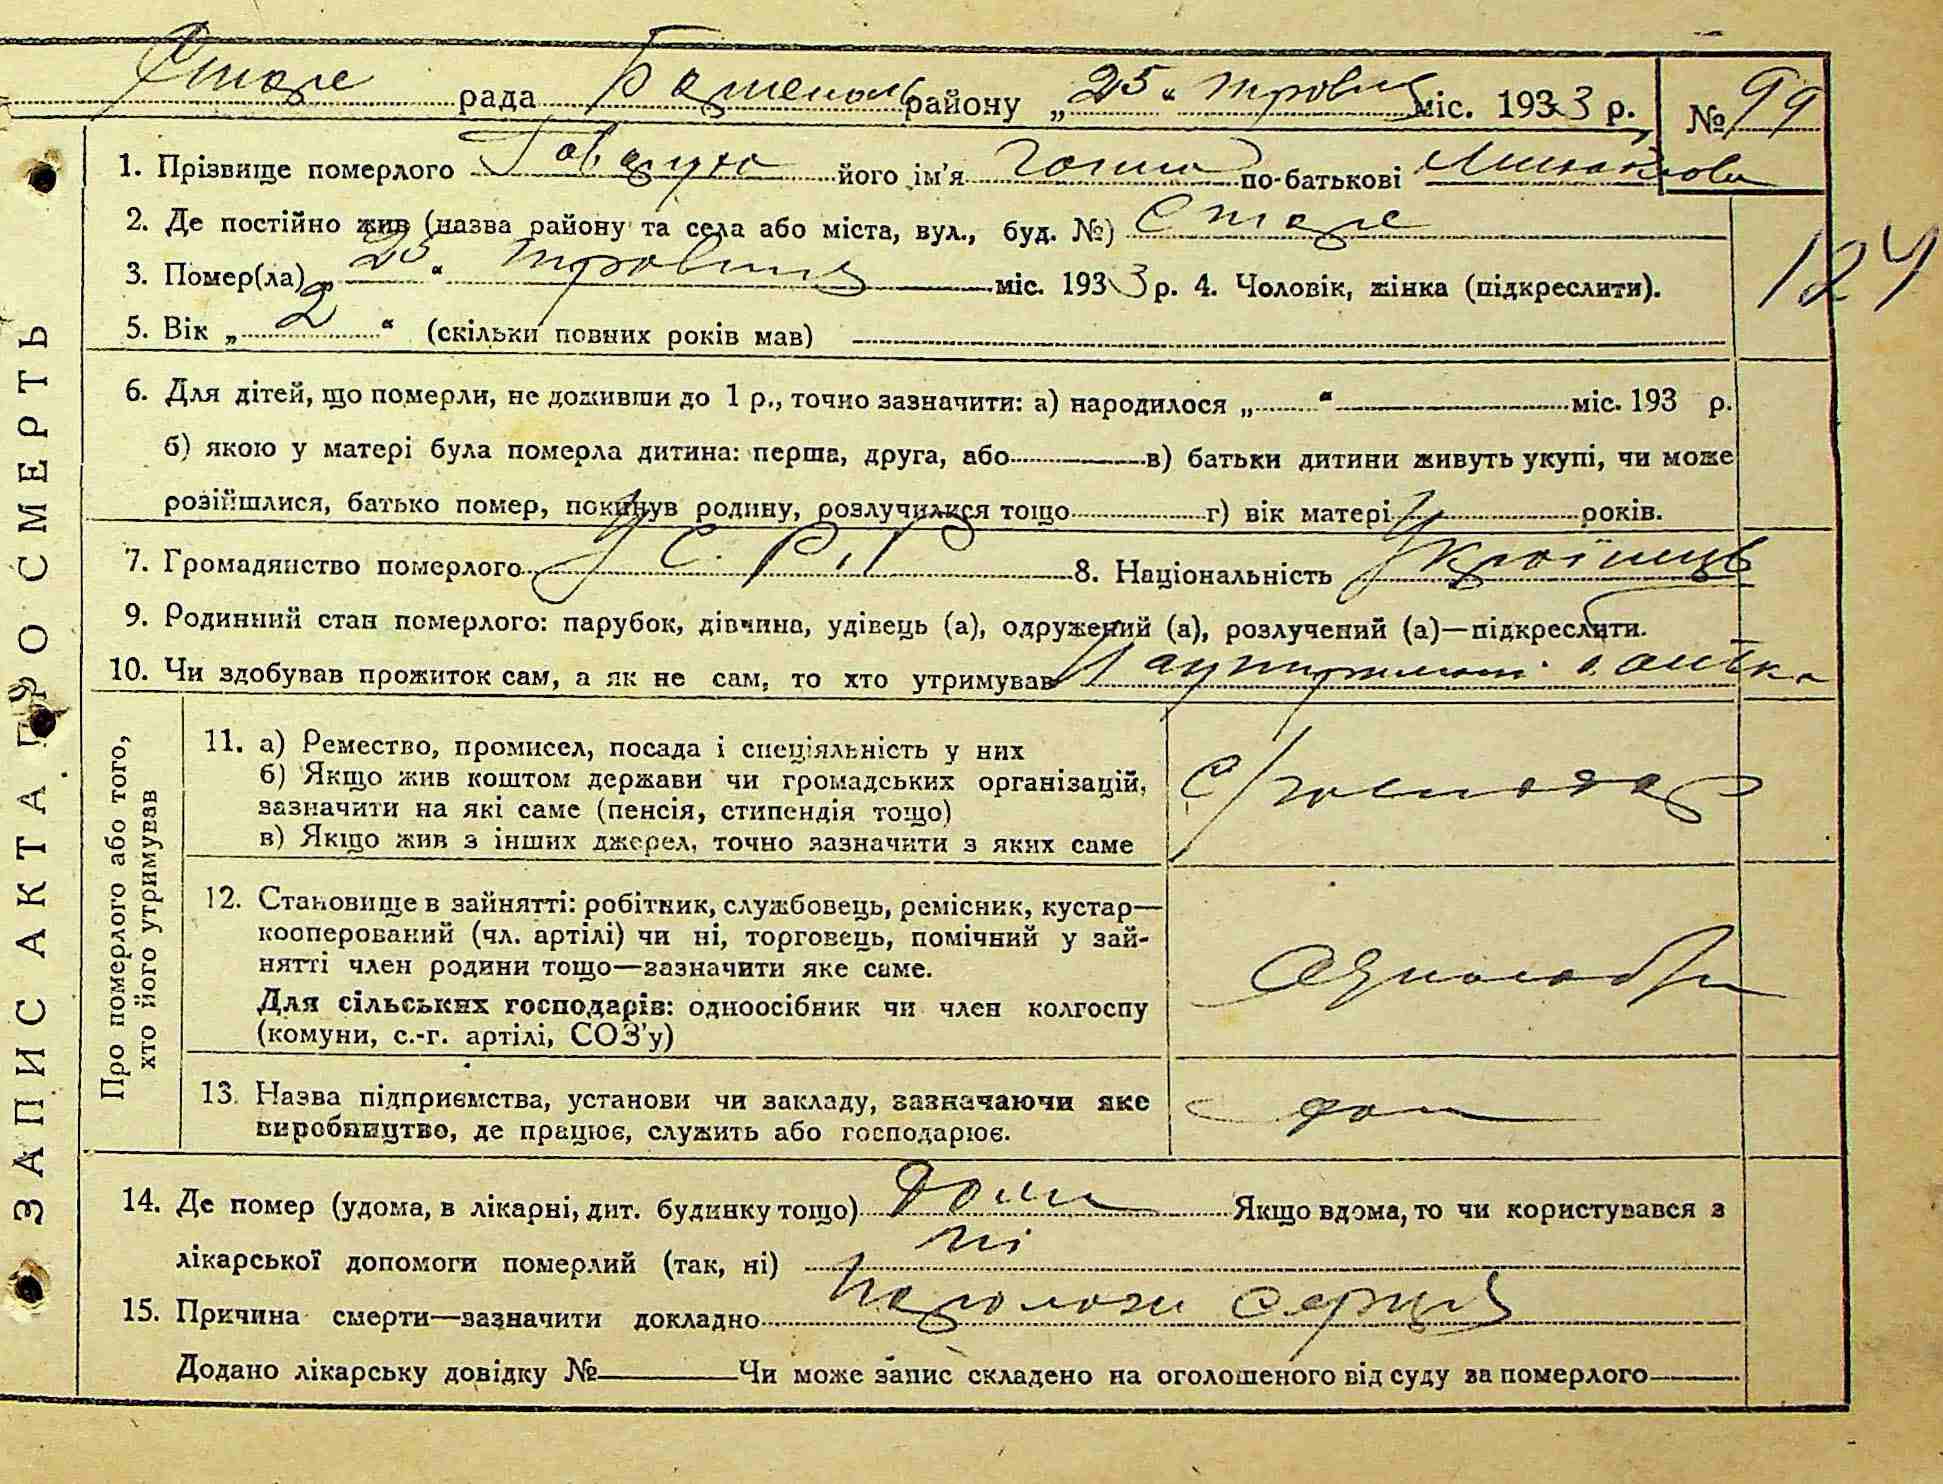 Старе рада Башеноль району „25“ травня міс. 1933 р. № 99
1. Прізвище померлого його ім'я по-батькові
2. Де постійно жив (назва району та села або міста, вул., буд. №) Старе
3. Помер(ла) „25“ травня міс. 1933 р. 4. Чоловік, жінка (підкреслити).
124
5. Вік „2“ (скільки повних років мав)
6. Для дітей, що померли, не доживши до 1 р., точно зазначити: а) народилося „ “ міс. 193 р.
б) якою у матері була померла дитина: перша, друга, або в) батьки дитини живуть укупі, чи може
розійшлися, батько помер, покинув родину, розлучилися тощо г) вік матері років.
7. Громадянство померлого У.С.Р.Р 8. Національність Українець
9. Родинний стан померлого: парубок, дівчина, удівець (а), одружений (а), розлучений (а)—підкреслити.
10. Чи здобував прожиток сам, а як не сам, то хто утримував На утриманні батька
ЗАПИС АКТА ПРО СМЕРТЬ
Про померлого або того,
хто його утримував
11. а) Ремество, промисел, посада і спеціяльність у них
б) Якщо жив коштом держави чи громадських організацій,
зазначити на які саме (пенсія, стипендія тощо)
в) Якщо жив з інших джерел, точно зазначити з яких саме
С/господар
12. Становище в зайнятті: робітник, службовець, ремісник, кустар—
кооперований (чл. артілі) чи ні, торговець, помічний у зай-
нятті член родини тощо—зазначити яке саме.
Для сільських господарів: одноосібник чи член колгоспу
(комуни, с.-г. артілі, СОЗ'у)
13. Назва підприємства, установи чи закладу, зазначаючи яке
виробництво, де працює, служить або господарює.
14. Де помер (удома, в лікарні, дит. будинку тощо) Дома Якщо вдома, то чи користувався з
лікарської допомоги померлий (так, ні) ні
15. Причина смерти—зазначити докладно серця
Додано лікарську довідку № Чи може запис складено на оголошеного від суду за померлого